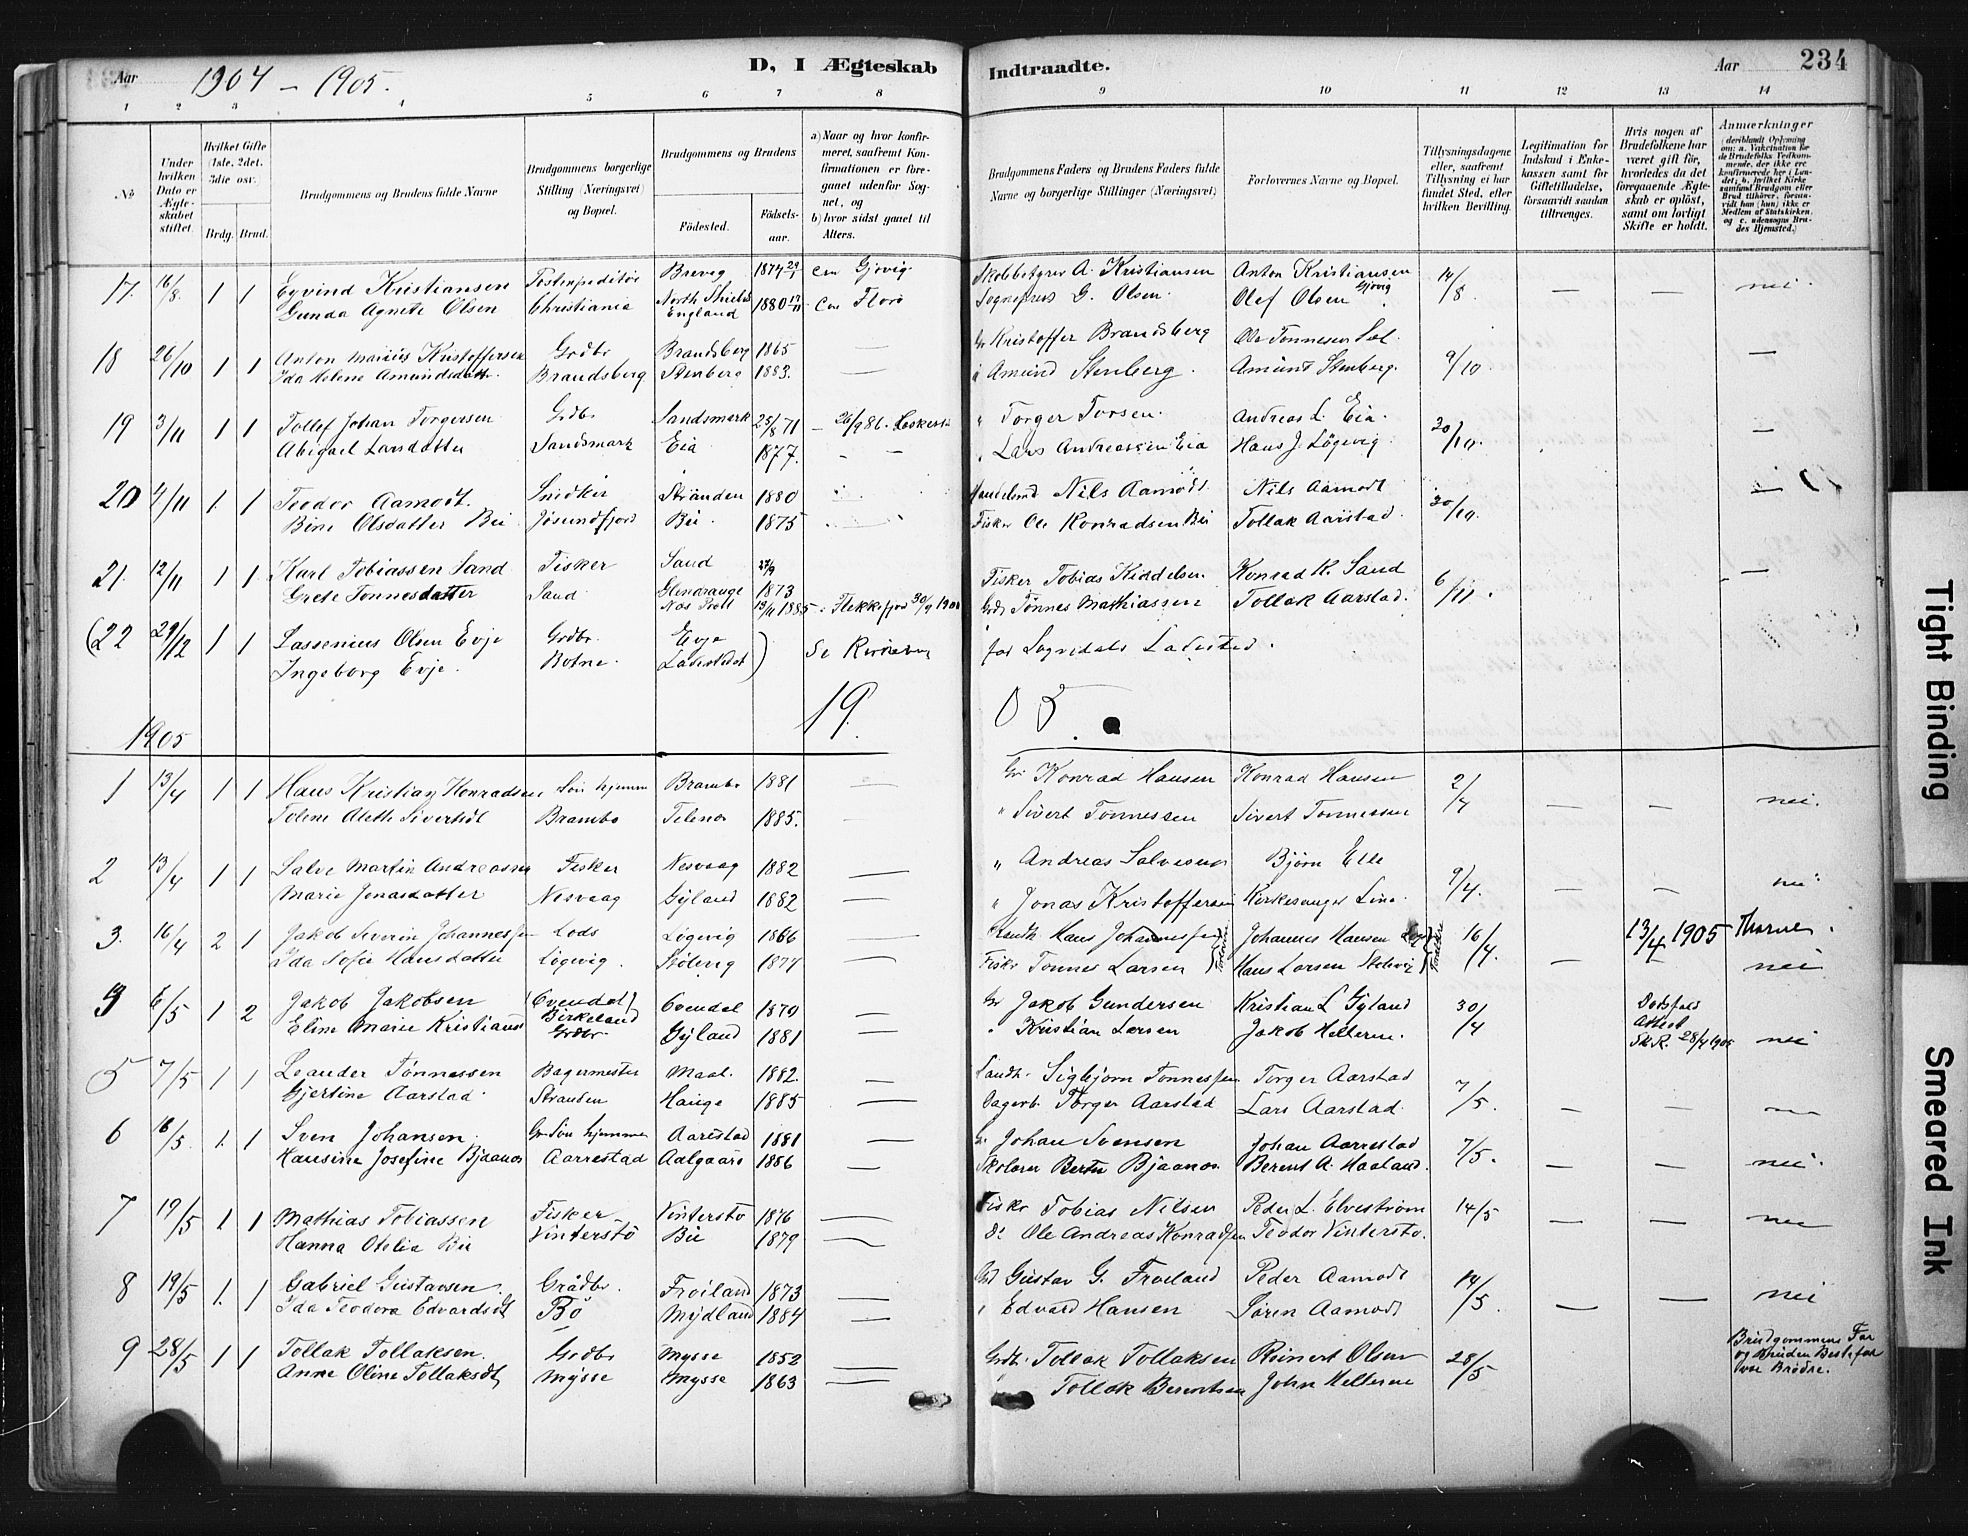 Aar 1904 – 1905.
D, I Ægteskab
Indtraadte.
Aar 234
1 2 3 4 5 6 7 8 9 10 11 12 13 14
No.
Under hvilken Dato er Ægteskabet stiftet.
Hvilket Gifte (1ste, 2det, 3die osv.)
Brdg. Brud.
Brudgommens og Brudens fulde Navne
Brudgommens borgerlige Stilling (Næringsvei) og Bopæl.
Brudgommens og Brudens
Fødested.
Fødselsaar.
a) Naar og hvor konfirmeret, saafremt Konfirmationen er foregaaet udenfor Sognet, og
b) hvor sidst gaaet til Alters.
Brudgommens Faders og Brudens Faders fulde Navne og borgerlige Stillinger (Næringsvei)
Forlovernes Navne og Bopæl.
Tillysningsdagene eller, saafremt Tillysning ei har fundet Sted, efter hvilken Bevilling.
Legitimation for Indskud i Enkekassen samt for Giftetilladelse, forsaavidt saadan tiltrænges.
Hvis nogen af Brudefolkene har været gift før, hvorledes da det foregaaende Ægteskab er opløst, samt om lovligt Skifte er holdt.
Anmærkninger
17. 16/8 1 1 Eyvind Kristiansen Postexpeditør Brevig 1874 29/1 Gjøvig A. Kristiansen Anton Kristiansen Gjøvig 14/8 — — nei.
Gunda Agnete Olsen Christiania North Shields England 1880 Florø Sogneprest G. Olsen. Olef Olsen
18 26/10 1 1 Anton Marius Kristoffersen Grdbr Brandsberg 1865 — Kristoffer Brandsberg Ole Tønnesen 9/10 —
Ida Helene Amundsdatter Brandsberg Stenberg 1883. — Amund Stenberg. Amund Stenberg.
19 3/11 1 1 Tollef Johan Torgersen Grdbr Sandsmark 25/8 71 26/9 86. " Torger Torsen. Andreas L. Eia. 30/10. —
Abigael Larsdatter Sandsmark Eia 1877. — — Lars Andreassen Eia Hans J. Løgevig
20 4/11 1 1 Teodor Aamodt. Snedker Stranden 1880 Nils Aamodt Nils Aamodt 30/10. —
Bine Olsdatter Bu Jøsundfjord Bu. 1875 Fisker Ole Konradsen Bu Tollak Aarstad.
21. 12/11 1 1 Karl Tobiassen Sand Fisker Sand 27/9 1873 Fisker Tobias Kiddelsen. Konrad K. Sand 6/11. —
Grete Tønnesdatter Sand Glendrange 1885 Flekkefjord 30/9 1900 Tønnes Mathiassen Tollak Aarstad.
(22 29/12 1 1 Lassenius Olsen Evje Grdbr. Evje ) Se for Sogndals Ladested.
Ingeborg Evje. Botne. Ladestedet
1905 19. 05.
1 13/4 1 1 Hans Kristian Konradsen Søn hjemme Brambo 1881 — Konrad Hansen Konrad Hansen 2/4 — — nei.
Toline Alette Sivertsdt Brambo 1885. " Sivert Tønnessen Sivert Tønnessen
2 13/4 1 1 Salve Martin Andreassen Fisker Nesvaag 1882 — " Andreas Salvesen Bjørn Elle 9/4. — — nei
Marie Jonasdatter Nesvaag Gyland 1882 — " Jonas Kristoffersen Kirkesanger
3. 16/4 2 1 Jakob Severin Johannessen Lods Løgevig 1866 Hans Johannessen Johannes Hansen 16/4 — 13/4 1905
Ida Sofie Hansdatter Løgevig. 1874 Fiskr Tønnes Larsen Hans Larsen — nei
6/5 1 2 Jakob Jakobsen (Ovendal) Birkeland Ovendal 1879 — Jakob Gundersen Kristian L Gyland 30/4 Dødsfald Attest
Eline Marie Kristiansd Grdbr. Gyland 1881 — " Kristian Larsen Jakob Helleren. Sk.R. 28/4 1905 nei
5 7/5 1 1 Leander Tønnessen Bagermester Maal. 1882. — Sigbjørn Tønnessen Torger Aarstad 7/5. — —
Gjertine Aarstad. Stranden Hauge 1885 — Torger Aarstad Lars Aarstad.
6 16/5. 1. 1 Sven Johansen. Søn hjemme Aarrestad 1881 — Johan Svensen Johan Aarrestad 7/5. — — nei.
Hansine Josefine Bjaanes Aarrestad Aalgaard 1886 — Skolerer Bernt Bjaanes. Berent A. Haaland.
7 19/5 1. 1 Mathias Tobiassen Fisker Vinterstø 1876 — Fiskr Tobias Nilsen Peder L. Elvestrøm 14/5 — — nei
Hanna Otelia Bu Vinterstø Bu 1879 — Do Ole Andreas Konradsen Teodor Vinterstø.
8 19/5 1. 1 Gabriel Gustavsen. Grdbr. Frøiland 1873 — Gustav G. Frøiland Peder Aamodt 14/5. — — nei
Ida Teodora Edvardsdt Bø Mydland 1884 — " Edvard Hansen Søren Aamodt
9 28/5 1 1 Tollak Tollaksen. Grdbr Mysse 1852 — Grdbr. Tollak Tollaksen Reinert Olsen 28/5 Brudgommens Far og Bruden Bestefar var Brødre.
Anne Oline Tollaksdt Mysse Mysse 1863 — Tollak Berentsen John Helleren
Tight Binding
Smeared Ink